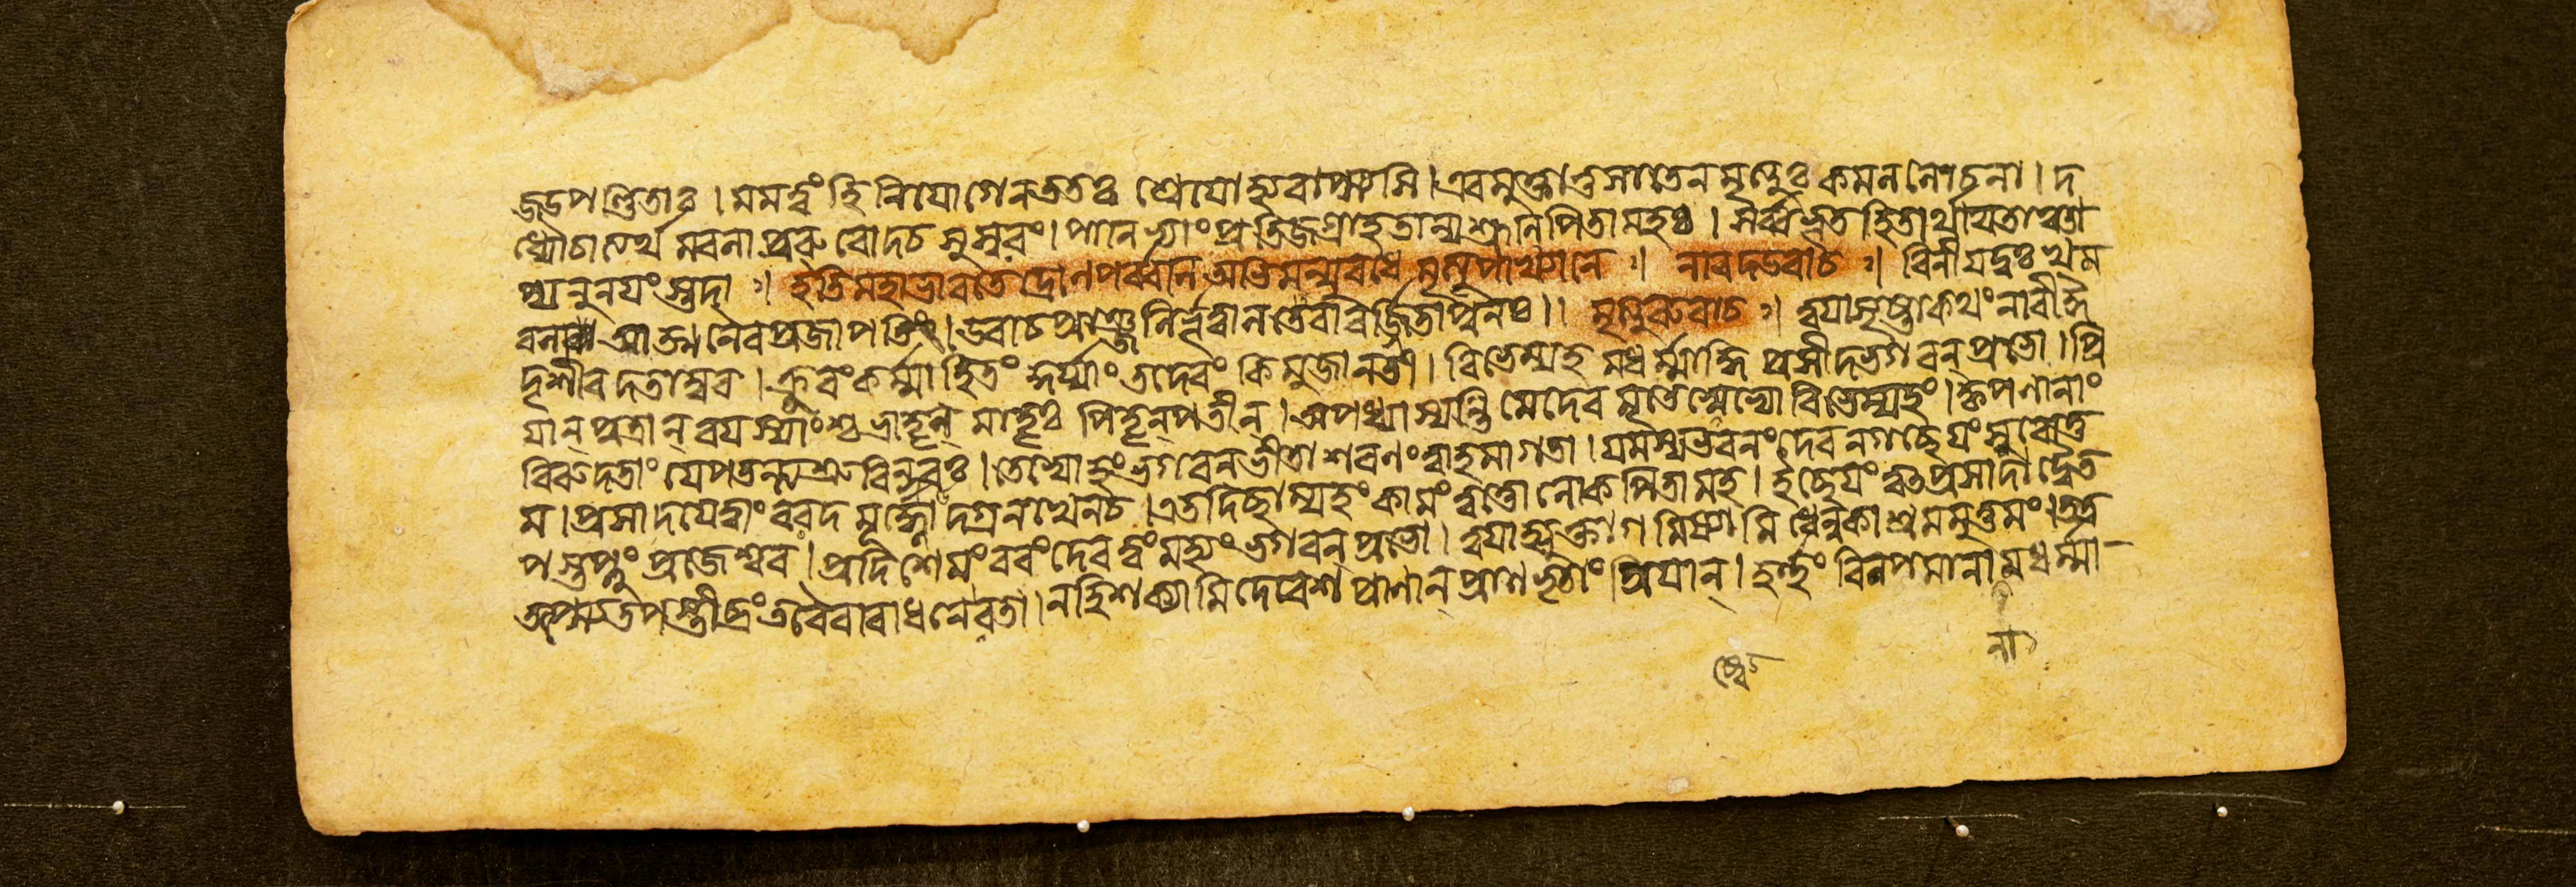 জডপণ্ডিতাঃ । মমত্বং হি নিযোগেন ততঃ শ্রেযোহ্যবাপ্স্যসি । এবমুক্তা তু সা তেন মৃত্যুঃ কমললোচনা । দ
ধ্যৌ চাত্যর্থমবলা প্ররুরোদ চ সুস্বরং । পাণিভ্যাং প্রতিজগ্রাহ তান্যশ্রূণি পিতামহঃ । সর্ব্বভূতহিতার্থায তাঞ্চা
প্যনুনযংস্তদা ঃ। ইতি মহাভারতে দ্রোণপর্ব্বণি অভিমন্যুবধে মৃত্যুপাখ্যানে ঃ। নারদ উবাচ ঃ। বিনীয দুঃখম
বলা আত্মনৈব প্রজাপতিং । উবাচ প্রাঞ্জলি লতেবাবর্জ্জিতা পুনঃ ।। মৃত্যুরুবাচ ঃ। ত্বযা সৃষ্টা কথং নারী
দৃশী বদতাম্বর । ক্রূরং কর্ম্মাহিতং কুর্য্যাং তদেবং কিমু জানতী । বিভেম্যহমধর্ম্মাদ্ধি প্রসীদ ভগবন্ প্রভো । প্রি
যান্ পুত্রান্ বযস্যাংশ্চ ভ্রাতৄন্ মাতৄঃ পিতৄন্ পতীন্ । অপধ্যাস্যন্তি মে দেব মৃতেষ্বেভ্যো বিভেম্যহং । কৃপণানাং
বিরুদতাং যে পতন্ত্যশ্রুবিন্দবঃ । তেভ্যোহং ভগবন্ ভীতা শরণং ত্বাহমাগতা । যমস্য ভবনং দেব ন গচ্ছেযং সুরোত্ত
ম । প্রসাদযে ত্বাং বরদ মূর্দ্ধ্নোদগ্রনখেন চ । এতদিচ্ছাম্যহং কামং ত্বত্তো লোকপিতামহ । ইচ্ছেযং ত্বৎপ্রসাদাদ্বৈ ত
পস্তপ্তুং প্রজেশ্বর । প্রদিশেমং বরং দেব ত্বং মহ্যং ভগবন্ প্রভো । ত্বযা হ্যুক্তা গমিষ্যামি ধেনুকাশ্রমমুত্তমং । তত্র
তপ্স্যে তপস্তীব্রং তবৈবারাধনে রতা । ন হি শক্ষ্যামি দেবেশ প্রাণান্ প্রাণভৃতাং প্রিযান্ । হর্ত্তুং বিলপমানানামধর্ম্মা
না